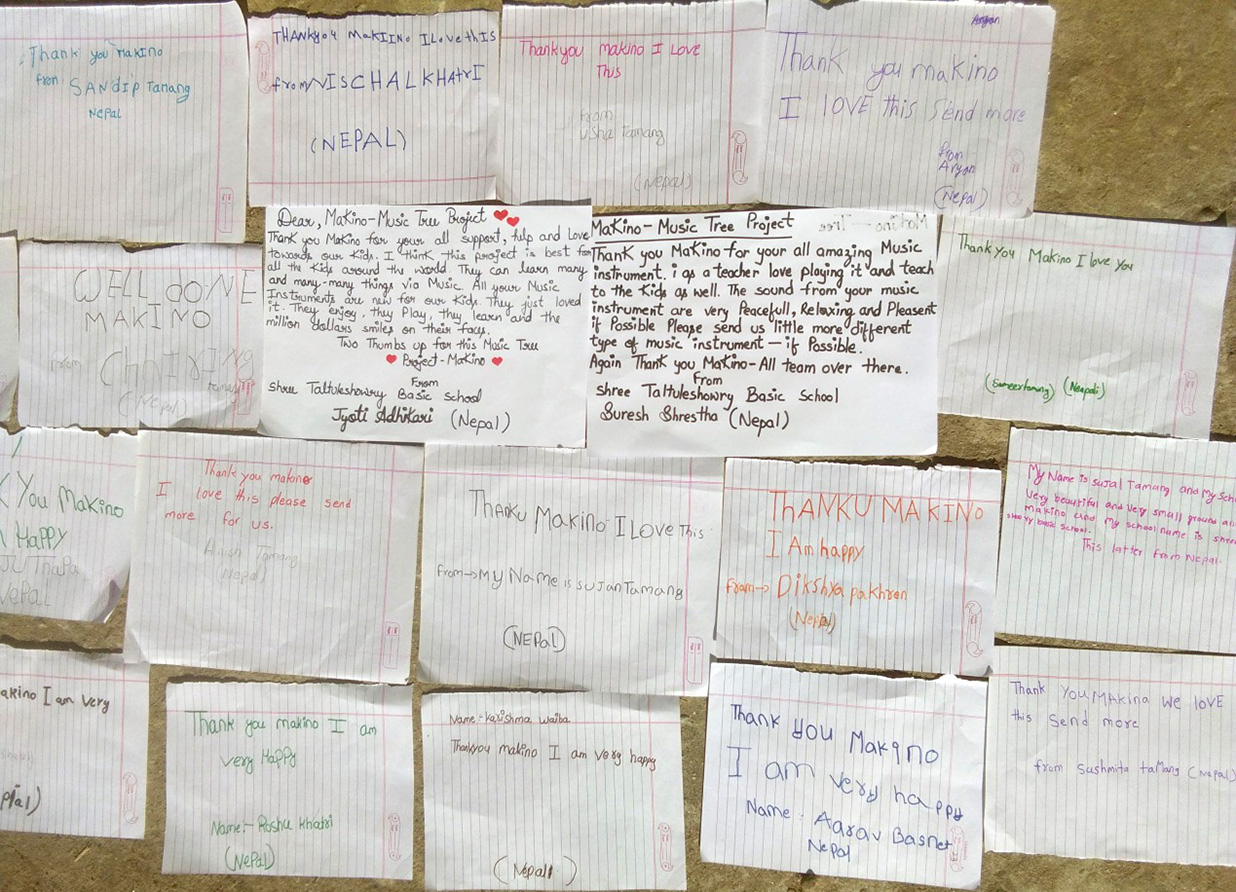 Thank you Makino
from SANdip Tamang
Nepal
THANKyoy MakIINO ILovethIS
from VISCHALKHAtrI
(NEPAL)
Thankyou makino I Love
This
from
Usha Tamang
(Nepal)
Aryan
Thank you makino
I lOVE this Send more
from
Aryan
(Nepal)
WELL dONE
MAKINO
from
tamang
(Nepal)
Dear, Makino-Music Tree Project ❤❤
Thank you Makino for your all support, help and Love
towards our Kids. I think this project is best for
all the Kids around the world. They can learn many
and many-many things via Music. All your Music
Instruments are new for our Kids. They just loved
it. They enjoy, they Play, they learn and the
million dollars smiles on their face.
Two Thumbs up for this Music Tree
❤ Project-Makino ❤
From
shree Taltuleshowry Basic school
Jyoti Adhikari (Nepal)
Makino- Music Tree Project
Thank you Makino for your all amazing Music
instrument. i as a teacher love playing it and teach
to the Kids as well. The sound from your music
instrument are very Peacefull, Relaxing and Pleasent
if Possible Please send us little more different
type of music instrument — if Possible.
Again Thank you Makino-All team over there.
From
shree Taltuleshowry Basic School
Suresh Shrestha (Nepal)
Thank You Makino I love you
(Sameertamang) (Nepali)
K You Makino
HAPPY
Thapa
NePAL
Thank you makino
I love this please send
more for us.
Anish Tamang
(Nepal)
Thanku Makino I Love This
from→My Name is sujanTamang
(NEPAL)
ThANKU MAKINO
I Am happy
from→ Dikshya pakhren
(Nepal)
My Name is sujal Tamang and My Scho
Very beautiful and Very small ground an
makino and my school name is shree
showry basic school.
This latter from Nepal.
akino I am Very
pal)
Thank you makino I am
very Happy
Name:- Roshu khatri
(Nepal)
Name:- Karishma Waiba
Thankyou makino I am very happy
(Nepali)
Thank you Makino
I am very happy
Name: Aarav Basnet
Nepal
Thank YOUMAKina We lOVE
this Send more
from Sushmita taMang (Nepal)